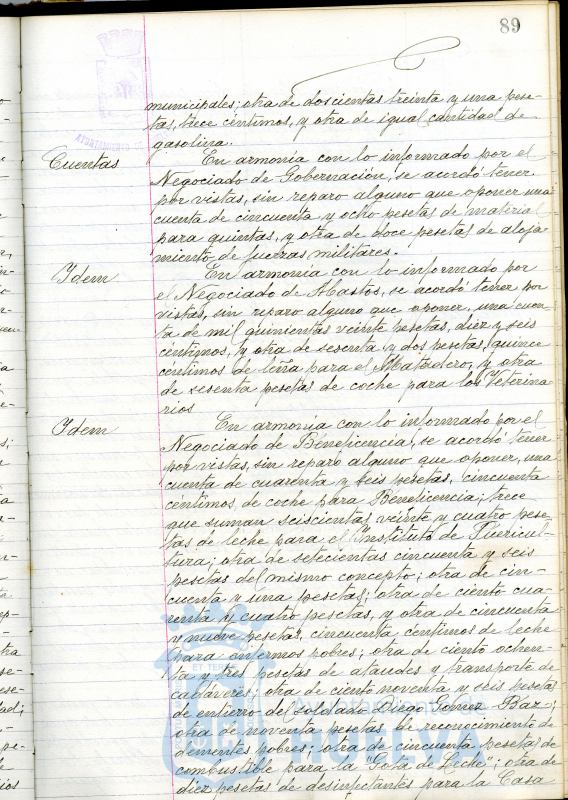 89
municipales; otra de doscientas treinta y una pese-
tas, trece céntimos, y otra de igual cantidad de
gasolina.
Cuentas
En armonía con lo informado por el
Negociado de Gobernación, se acordó tener
por vistas, sin reparo alguno que oponer una
cuenta de cincuenta y ocho pesetas de material
para quintas, y otra de doce pesetas de aloja-
miento de fuerzas militares.
Idem
En armonía con lo informado por
el Negociado de Abastos, se acordó tener por
vistas, sin reparo alguno que oponer, una cuen-
ta de mil quinientas veinte pesetas, diez y seis
céntimos, y otra de sesenta y dos pesetas, quince
céntimos de leña para el Matadero, y otra
de sesenta pesetas de coche para los Veterina
rios
Idem
En armonía con lo informado por el
Negociado de Beneficencia, se acordó tener
por vistas, sin reparo alguno que oponer, una
cuenta de cuarenta y seis pesetas, cincuenta
céntimos de coche para Beneficencia; trece
que suman seiscientas veinte y cuatro pese-
tas de leche para el Instituto de Puericul-
tura; otra de setecientas cincuenta y seis
pesetas del mismo concepto; otra de cin-
cuenta y una pesetas; otra de ciento cua-
renta y cuatro pesetas, y otra de cincuenta
y nueve pesetas, cincuenta céntimos de leche
para enfermos pobres; otra de ciento ochen-
ta y tres pesetas de ataudes y transporte de
cadáveres; otra de ciento noventa y seis pesetas
de entierro del soldado Diego Gomez Baz;
otra de noventa pesetas de reconocimiento de
dementes pobres; otra de cincuenta pesetas de
combustible para la "Gota de Leche"; otra de
diez pesetas de desinfectantes para la Casa